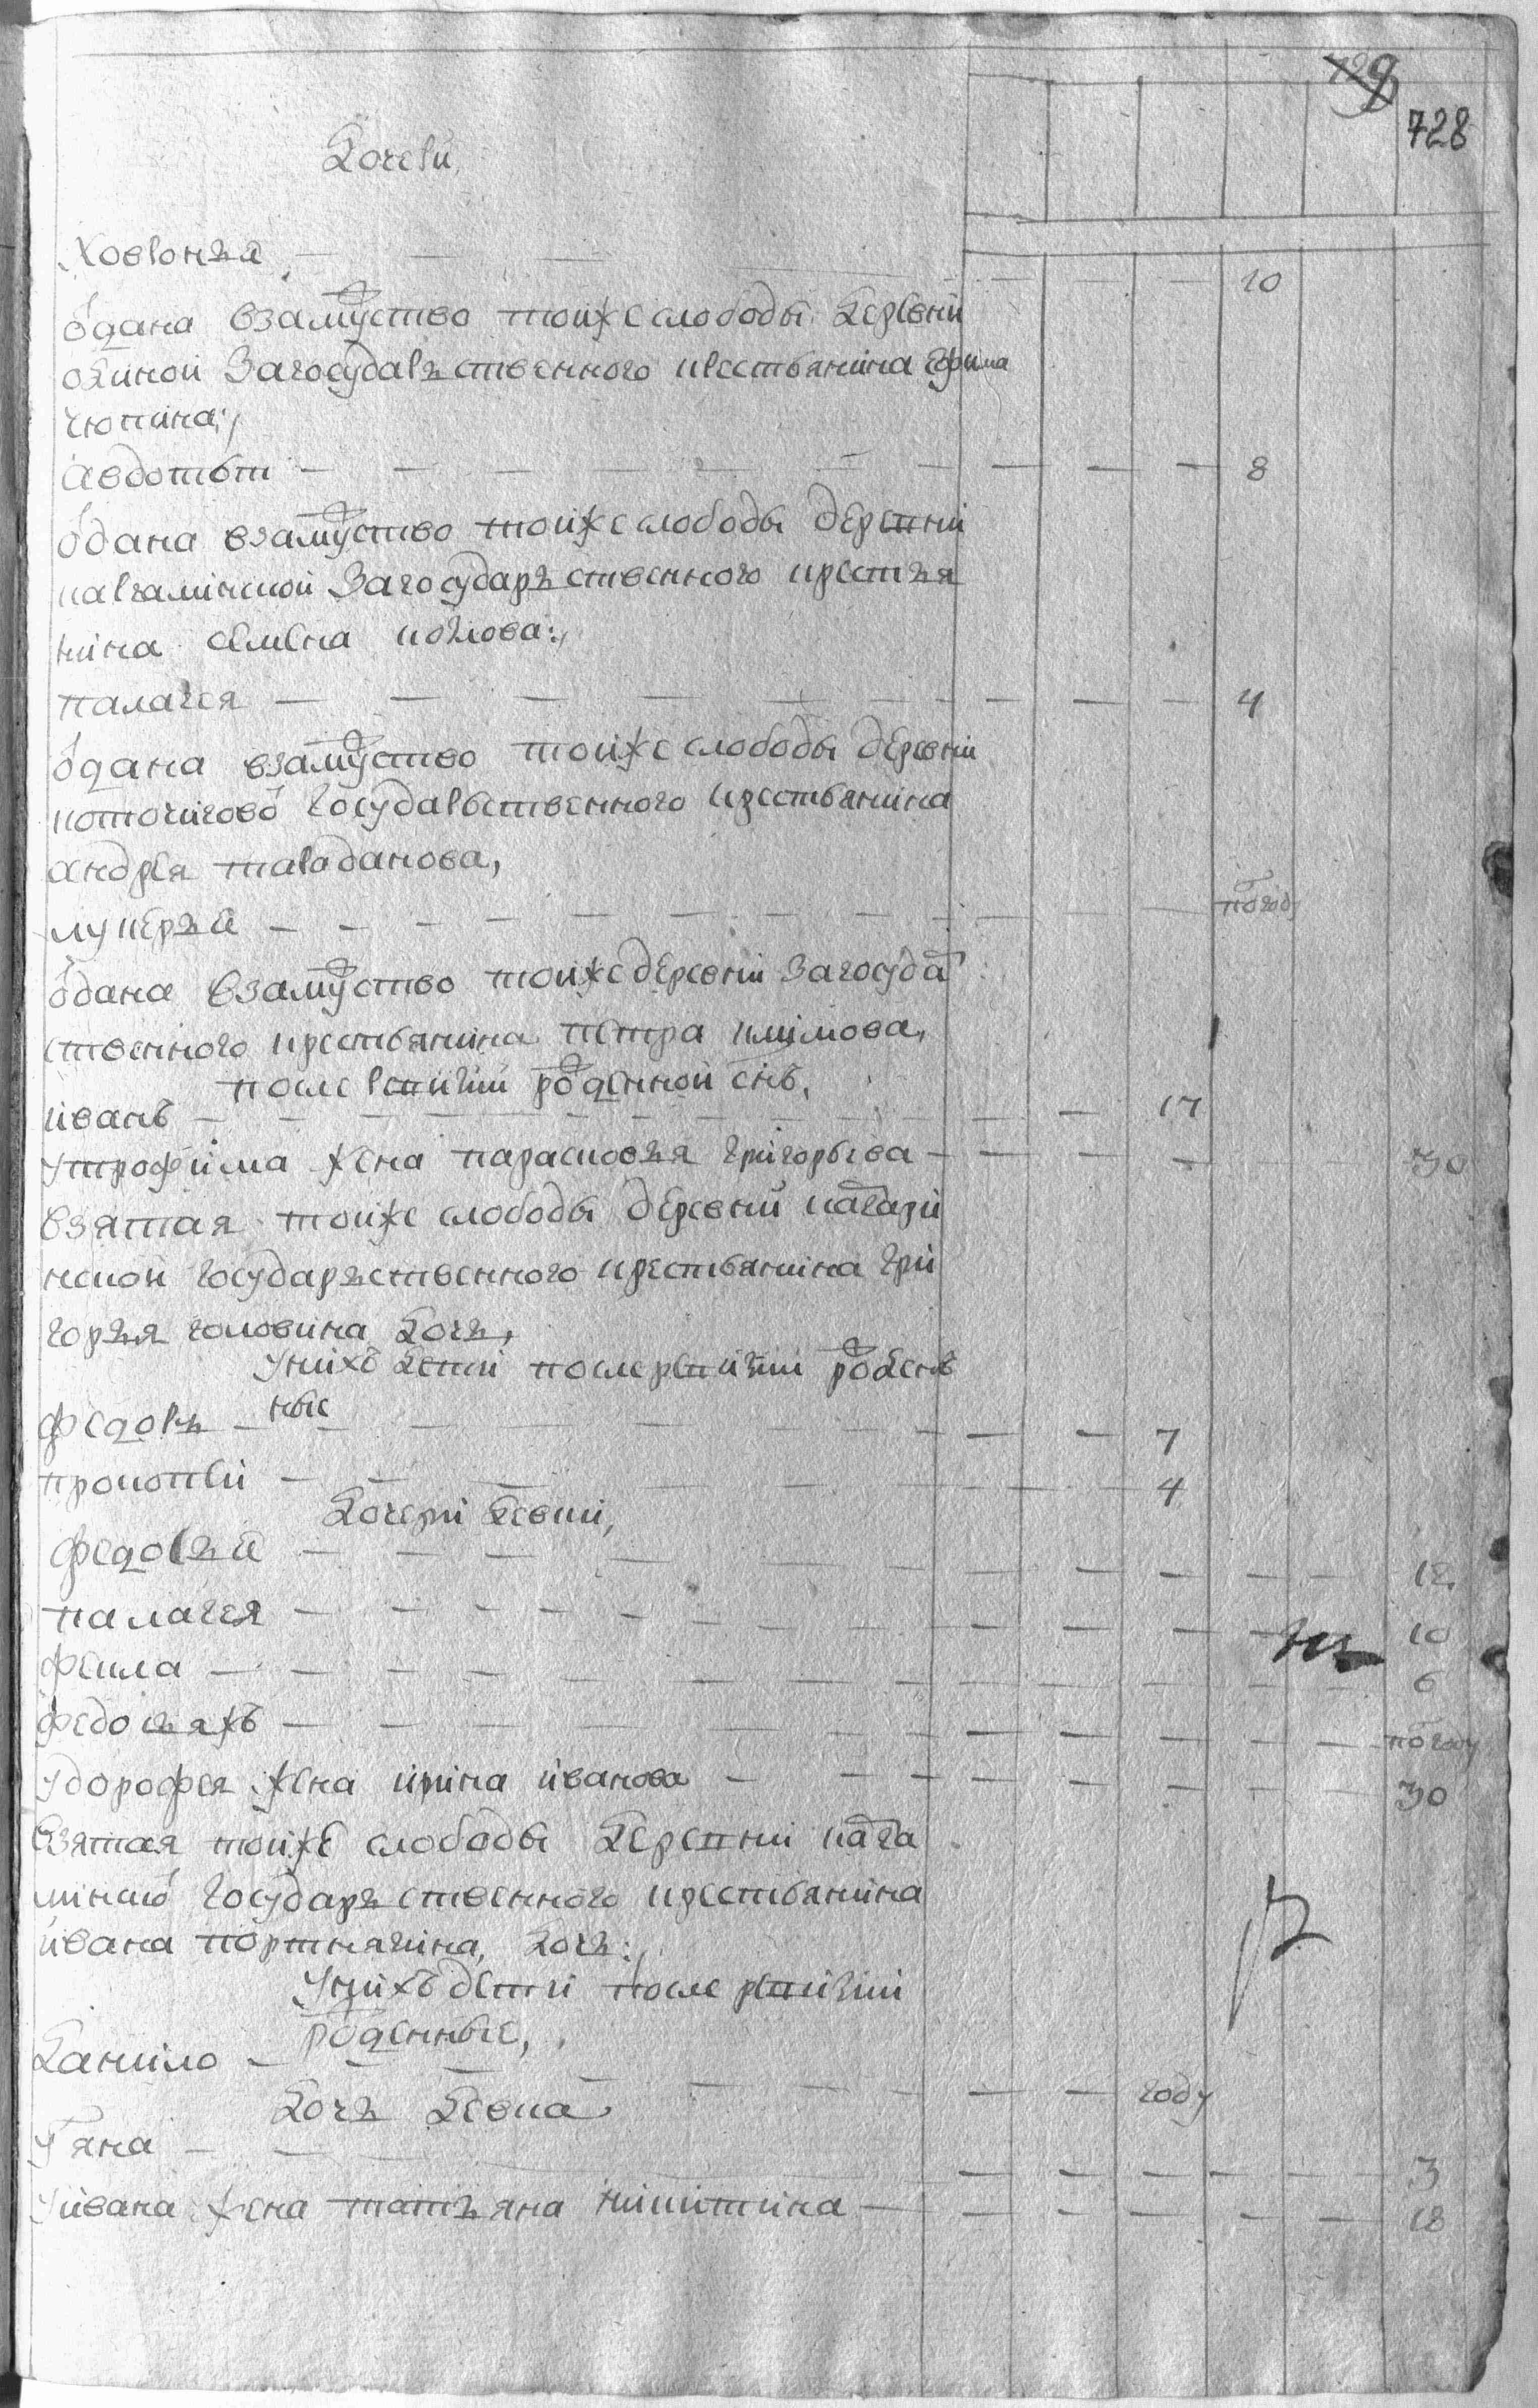 729
728
Дочери
Ховронья 10
одана взамужство тойже слободы деревни
одиной Загосударственного крестьянина ефима
чюпина
Авдотья 8
одана взамужство тойже слободы деревни
Загосударъственного крестья
нина семена козлова
палагея 4
одана взамужство тойже слободы деревни
государственного крестьянина
андрея тараданова,
лукеръя погоду
одана взамужство тойже деревни Загосудар
ственного крестьянина петра климова,
после ревизии рожденной снъ,
иванъ 17
утрофима жена парасковъя григорьева 30
взятая тойже слободы деревни качари
нской государъственного крестьянина гри
горъя головина дочь,
унихъ дети послеревизии рожден
ные
федоръ 7
прокопеи 4
дочери девки,
федоръя 12
палагея 10
фекла 6
федосъяжъ погоду
удорофея жена ирина иванова 30
взятая тойже слободы деревни карга
минской государъственного крестьянина
ивана портнягина, дочь
унихъ дети после ревизии
рожденные,
Данило году
дочь девка
Уляна 3
уивана жена татъяна никитина 18